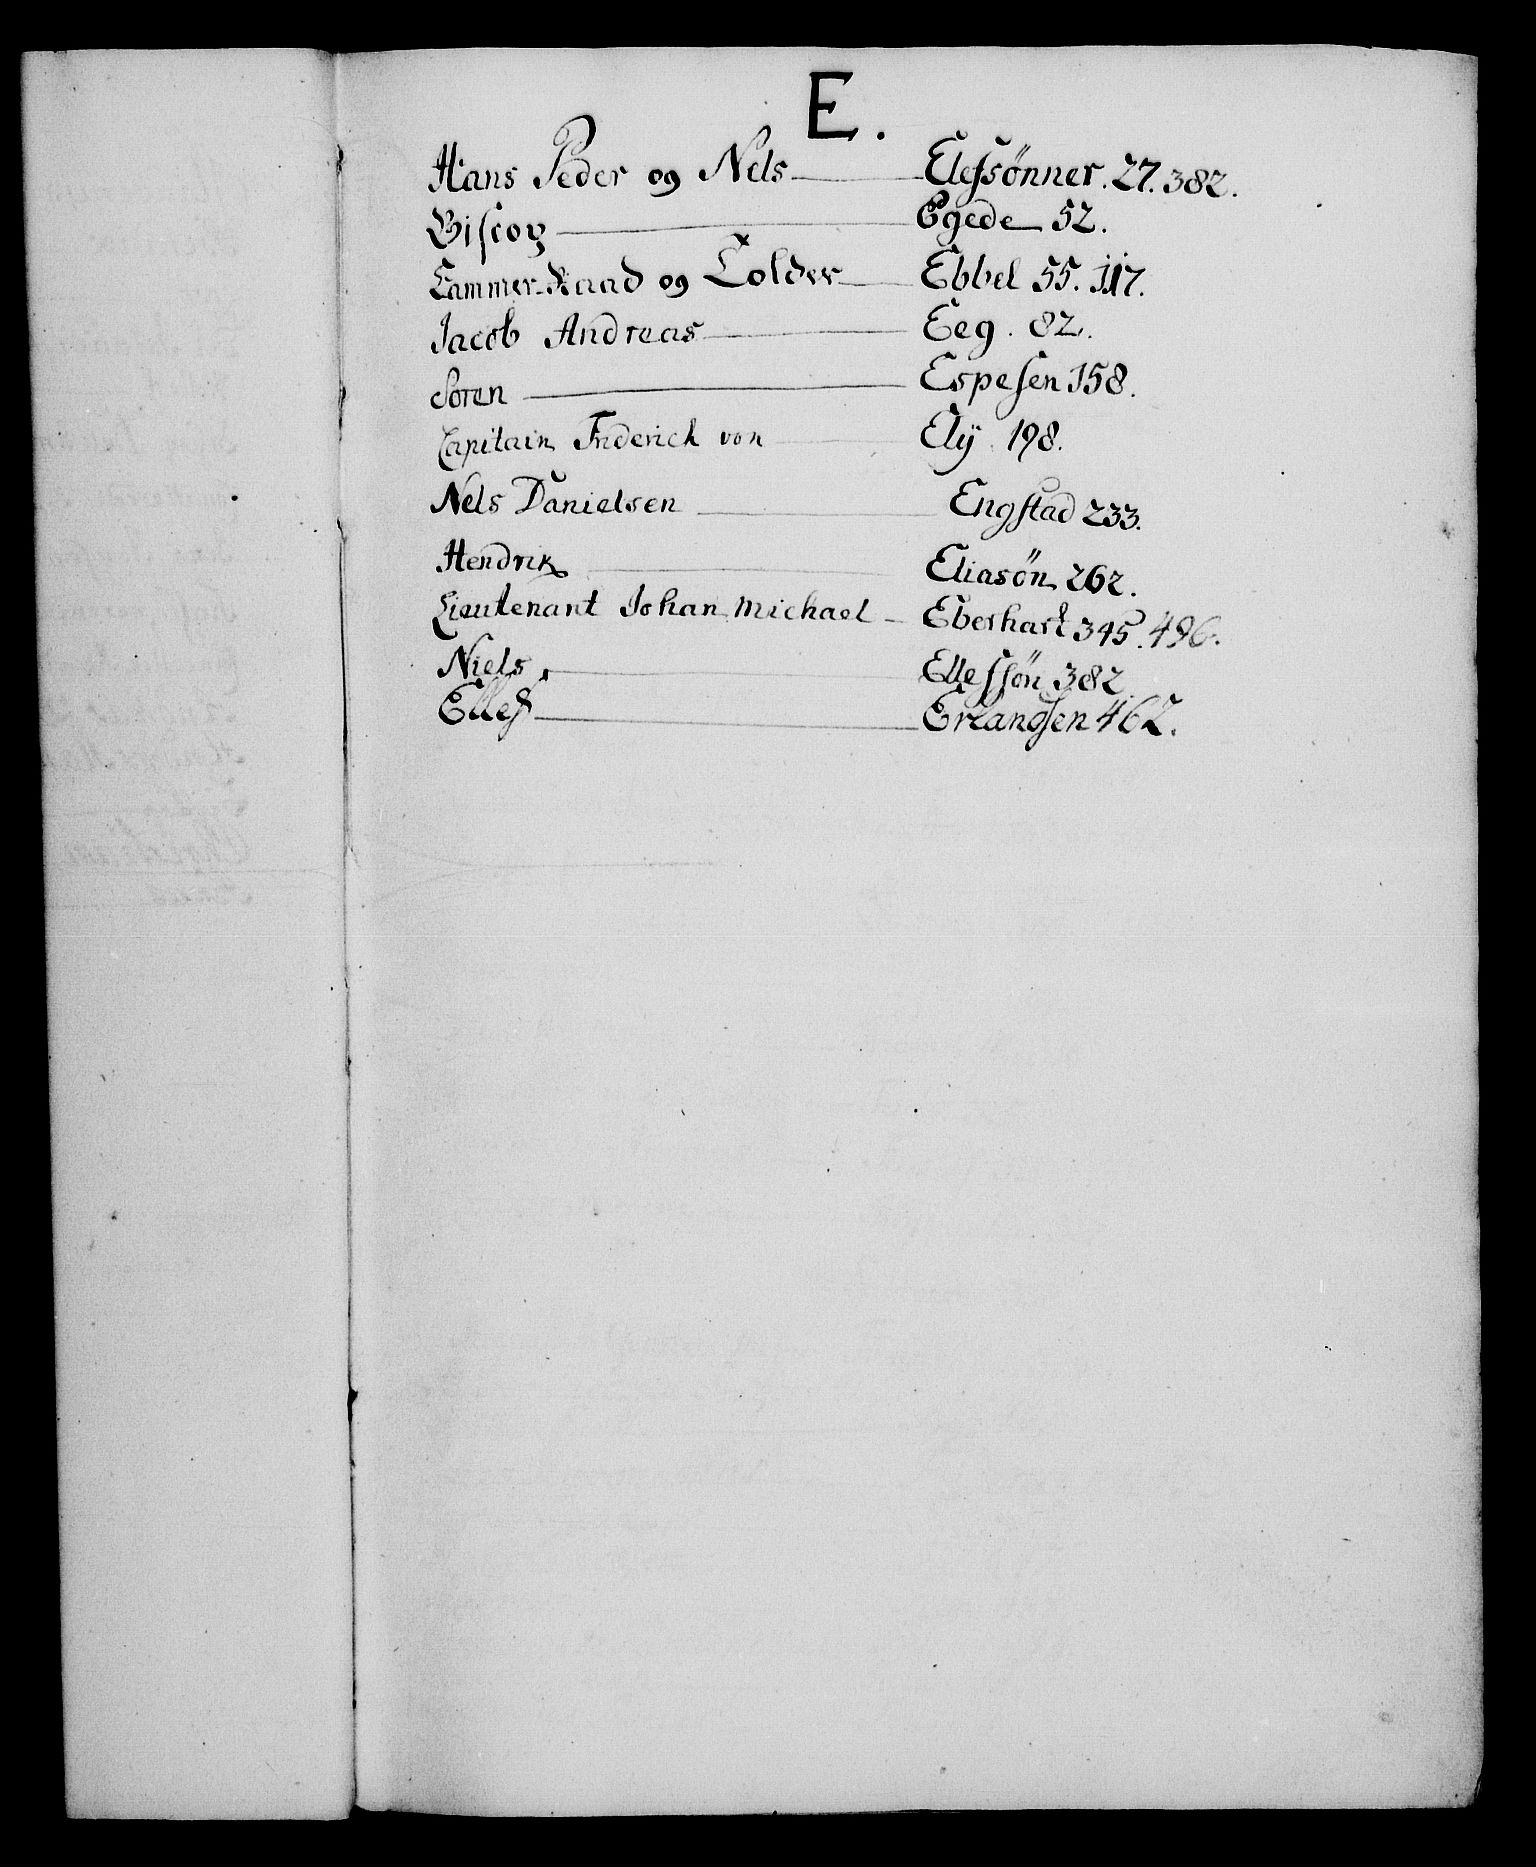 E.
Hans Peder og Nels Elefsönner. 27. 382.
Biscop Egede 52.
Cammer-Raad og Tolder Ebbel 55. 117.
Jacob Andreas Eeg. 82.
Soren Espesen 158.
Capitain Friderich von Elÿ. 198.
Nels Danielsen Engstad 233.
Hendrik Eliasön 262.
Lieutenant Johan Michael Eberhart 345. 496.
Niels Ellefsøn 382
Ellef Erlandsen 462.